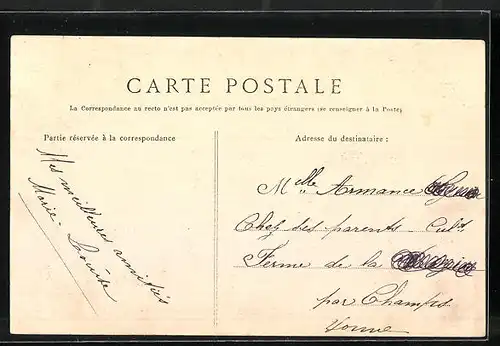 CARTE POSTALE
La Correspondance au recto n'est pas acceptée par tous les pays étrangers (se renseigner à la Poste)
Partie réservée à la correspondance
Mes meilleures amitiés
Marie
Adresse du destinataire :
Mlle Armance
Chez des parents Cult
Ferme de la
par Champs
Yonne